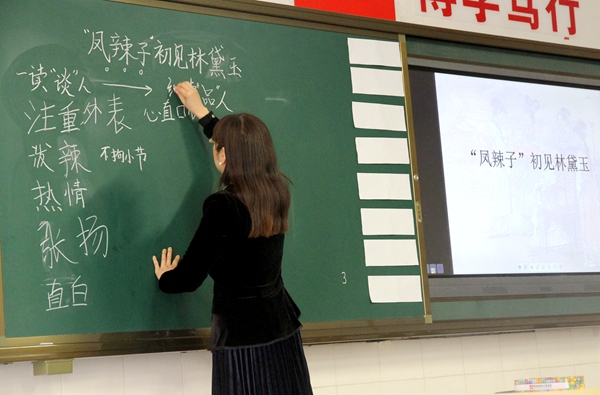 博学笃行
"凤辣子"初见林黛玉
"读""谈"人 "品"人
注重外表 心直口
泼辣 不拘小节
热情
张扬
直白
3
"凤辣子"初见林黛玉